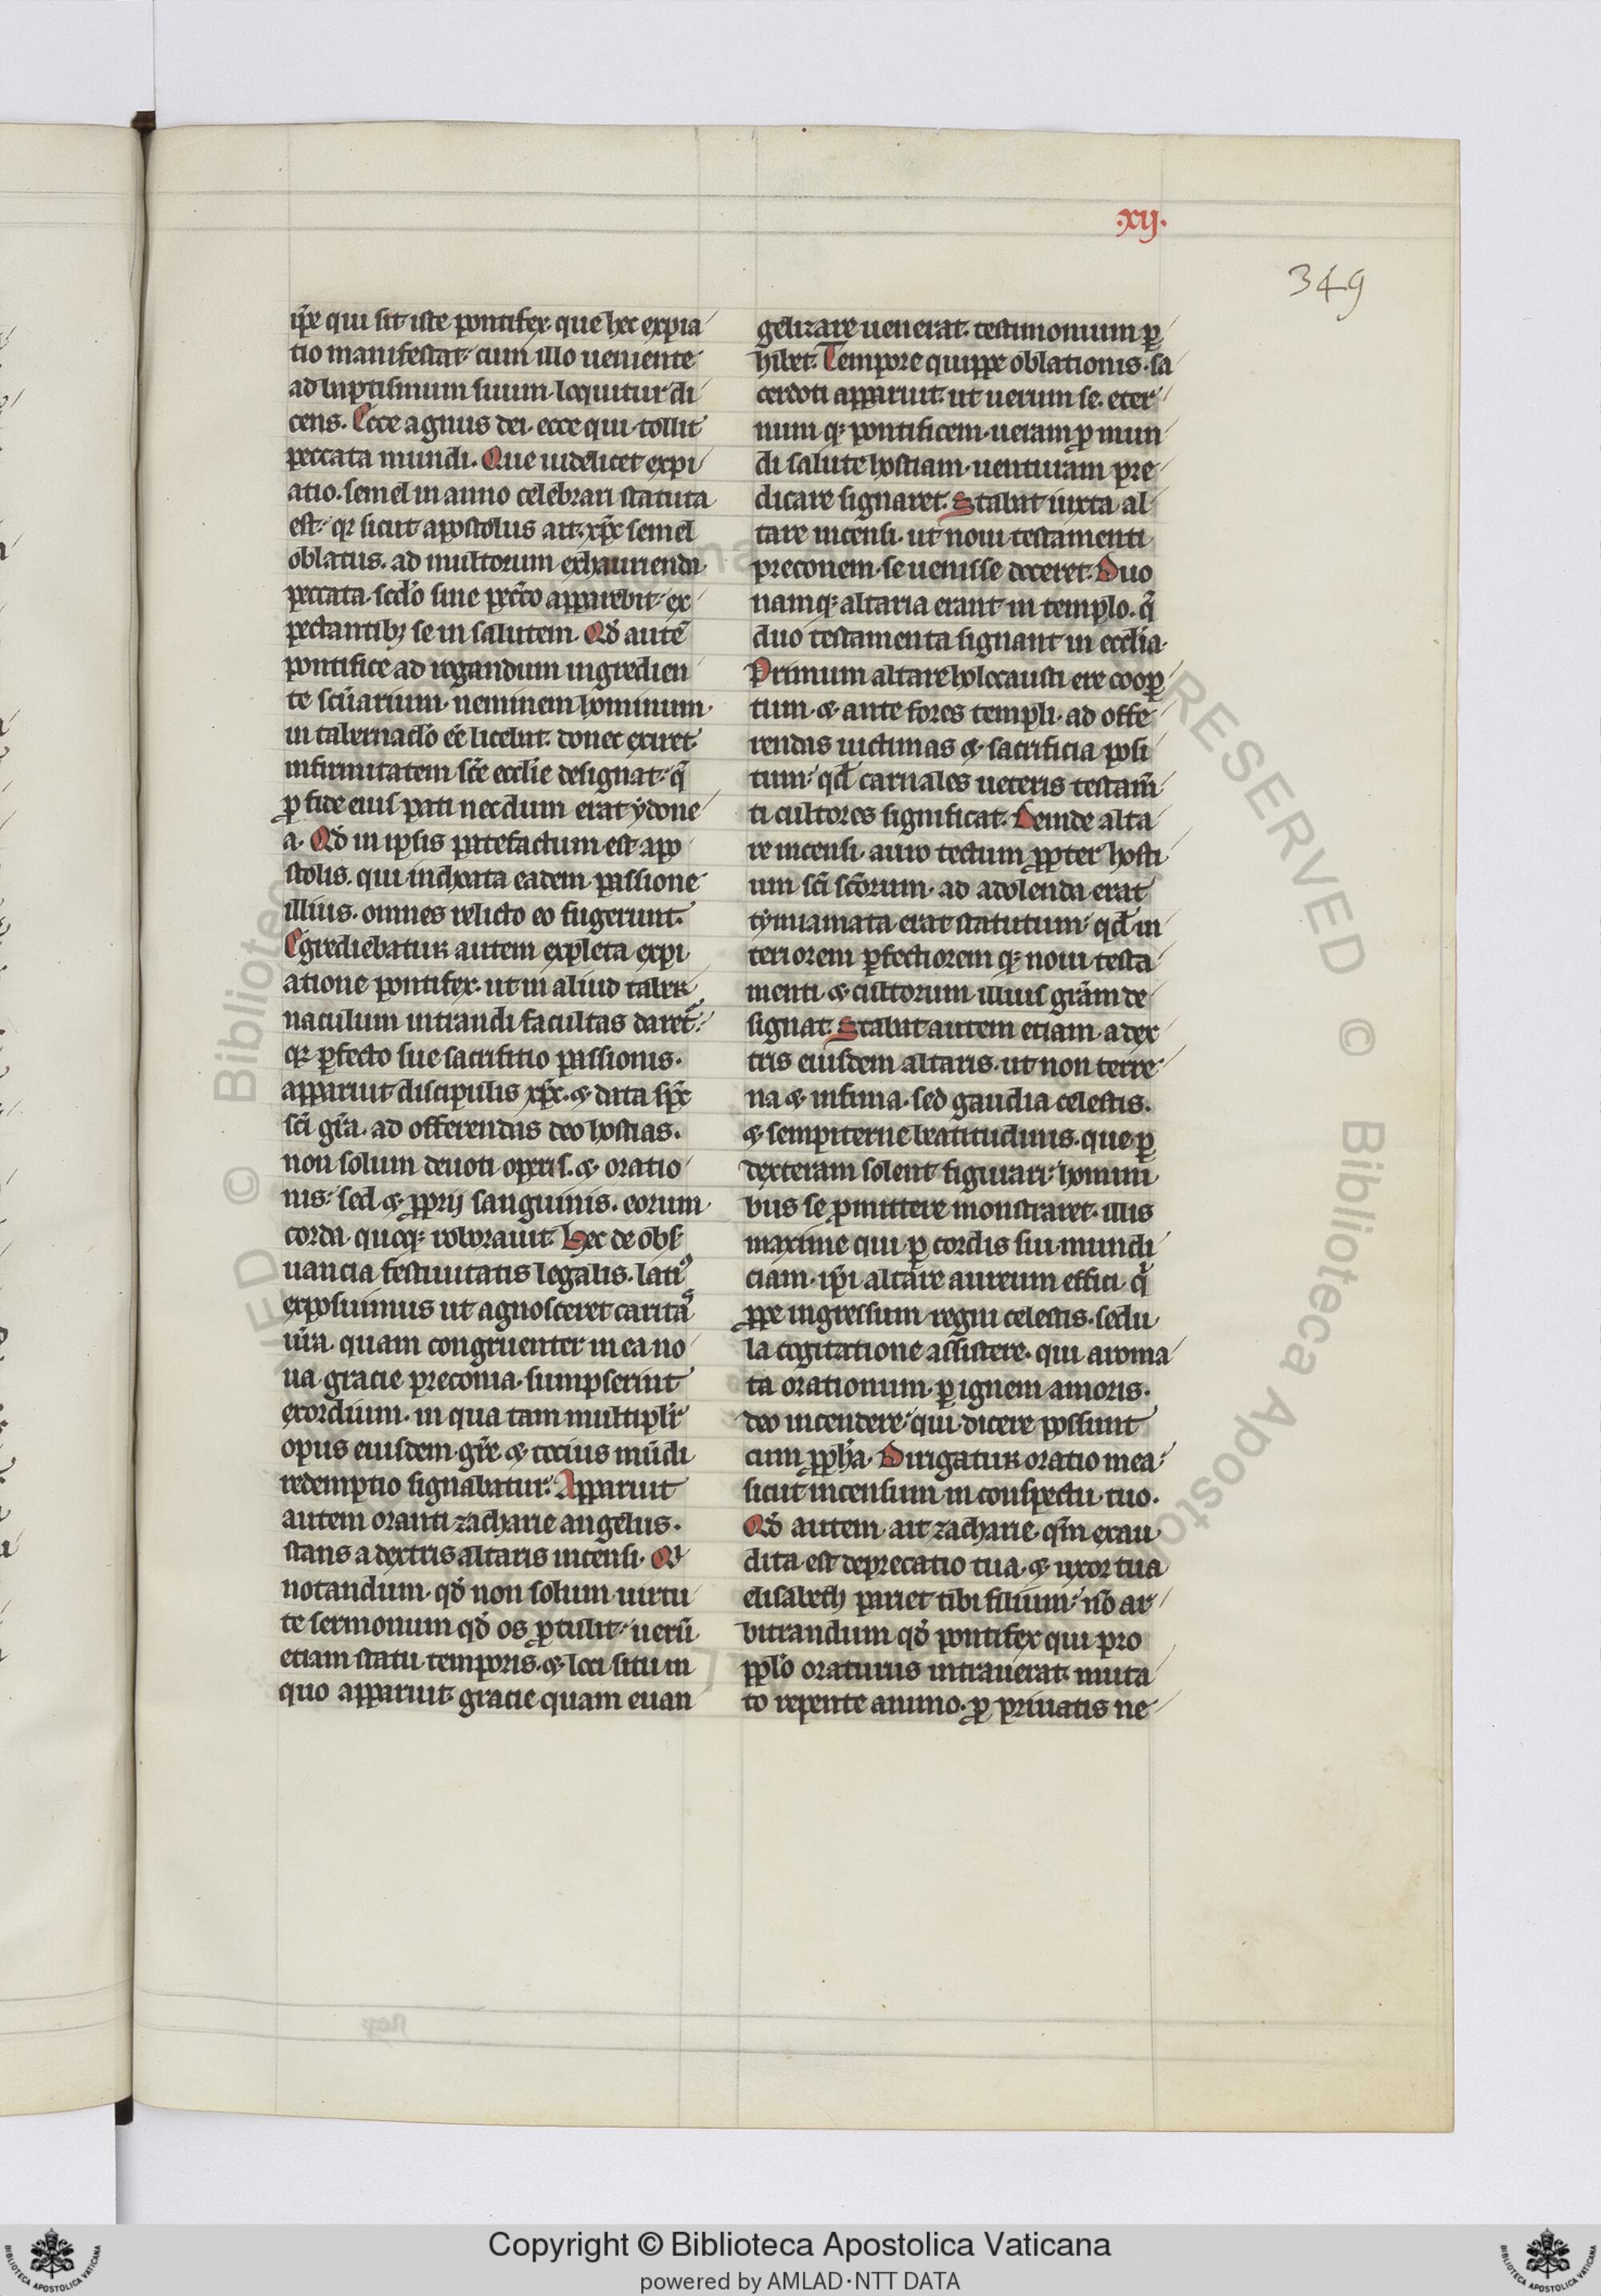 .xij.
349
ip̄e qui sit iste pontifex. que hec expia
tio manifestat. cum illo ueniente
ad baptismum suum. loquitur di
cens. Ecce agnus dei. ecce qui tollit
peccata mundi. Que uidelicet expi
atio. semel in anno celebrari statuta
est. qꝛ sicut apostolus ait. xp̄c semel
oblatus. ad multorum exhauriendi
peccata. scďo sine pecc̄o apparebit. ex
pectantibꝫ se in salutem. Qď autē
pontifice ad rogandum ingredien
te scūarium. neminem hominum.
in tabernaclo ēē licebat. donec exiret.
infirmitatem sc̄e eccl̄ie designat. q̄
ꝓ fide eius pati necdum erat ydone
a. Qď in ipsis patefactum est apo
stolis. qui inchoata eadem passione
illius. omnes relicto eo fugerunt.
Egrediebatur autem expleta expi
atione pontifex. ut in aliud taber
naculum intrandi facultas daret᷑.
qꝛ ꝑfecto sue sacrifitio passionis.
apparuit discipulis xp̄c. ⁊ data sp̄c
sc̄i gr̄a. ad offerendas deo hostias.
non solum deuoti operis. ⁊ oratio
nis. sed ⁊ ꝓprij sanguinis. eorum
corda quoqꝫ roborauit. Hec de obs̄
uancia festiuitatis legalis. lati᷒
exposuimus ut agnosceret carita᷒
ur̄a. quam congruenter in ea no
ua gracie preconia sumpserint
exordium. in qua tam multipli᷑
opus eiusdem gr̄e. ⁊ tocius mūdi
redemptio signabatur. Apparuit
autem oranti zacharie angelus.
stans a dextris altaris incensi. Vƀ
notandum. qď non solum uirtu
te sermonum qď os ꝓtulit. uerū
etiam statu temporis. ⁊ loci situ in
quo apparuit gracie quam euan
gelizare uenerat. testimonium ꝑ
hibet. Tempore quippe oblationis. sa
cerdoti apparuit. ut uerum se. eter
num qꝫ pontificem. ueram ꝓ mun
di salute hostiam. uenturam pre
dicare signaret. Stabat iuxta al
tare incensi. ut noui testamenti
preconem. se uenisse doceret. Duo
namqꝫ altaria erant in templo. q̄
duo testamenta signant in eccl̄ia.
Primum altare holocausti ere cooꝑ
tum. ⁊ ante fores templi. ad offe
rendas uictimas ⁊ sacrificia posi
tum. qď carnales ueteris testam̄
ti cultores significat. Deinde alta
re incensi. auro tectum ꝓpter hosti
um sc̄i sc̄orum. ad adolenda erat
tymiamata erat statutum. qď in
teriorem ꝑfectiorem qꝫ noui testa
menti. ⁊ cultorum illius gr̄am de
signat. Stabat autem etiam. a dex
tris eiusdem altaris. ut non terre
na ⁊ infima. sed gaudia celestis.
⁊ sempiterne beatitudinis. que ꝑ
dexteram solent figurari. homini
bus se ꝓmittere monstraret. illis
maxime qui ꝑ cordis sui mundi
ciam. ip̄i altare aureum effici. q̄
ꝓpe ingressum regni celestis. sedu
la cogitatione assistere. qui aroma
ta orationum. ꝑ ignem amoris.
deo incendere. qui dicere possunt
cum ꝓph̄a. Dirigatur oratio mea.
sicut incensum in conspectu tuo.
Qď autem ait zacharie. qm̄ exau
dita est deprecatio tua. ⁊ uxor tua
elisabeth pariet tibi filium. nō ar
bitrandum qď pontifex qui pro
ppl̄o oraturus intrauerat. muta
to repente animo. ꝓ priuatis ne
Copyright © Biblioteca Apostolica Vaticana
powered by AMLAD·NTT DATA